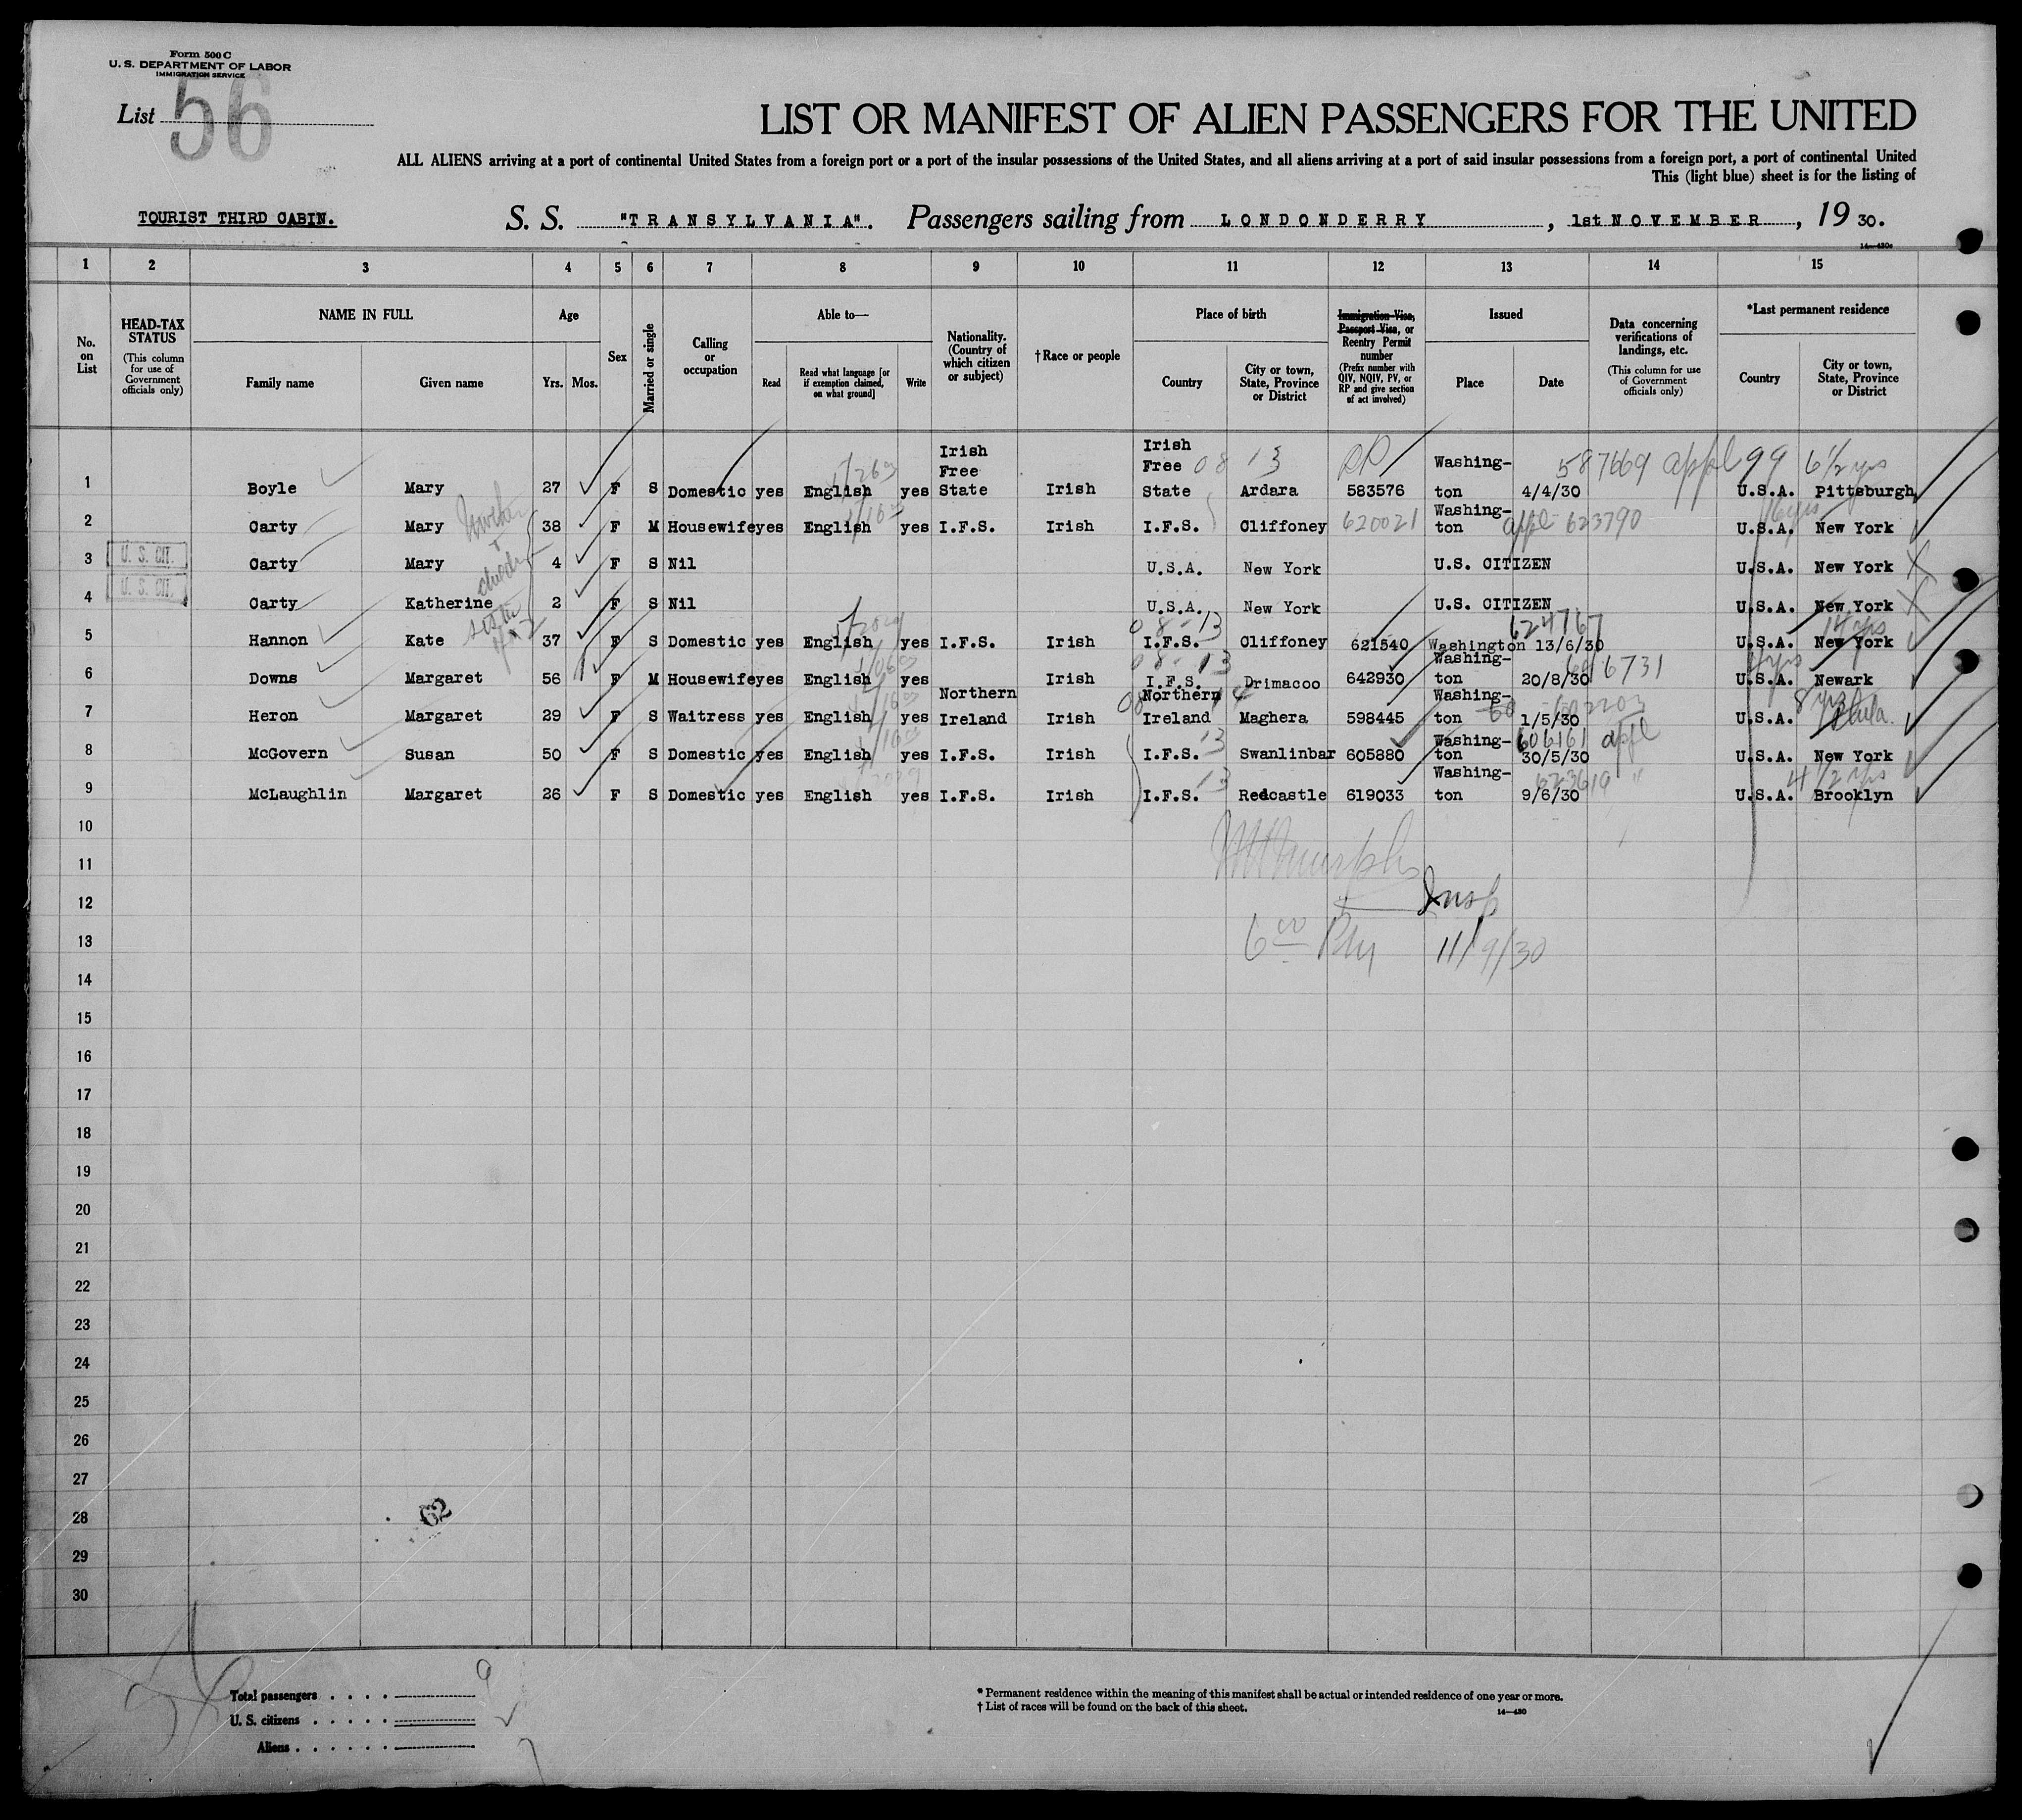 Form 500 C
U. S. DEPARTMENT OF LABOR
IMMIGRATION SERVICE
List 56
LIST OR MANIFEST OF ALIEN PASSENGERS FOR THE UNITED
ALL ALIENS arriving at a port of continental United States from a foreign port or a port of the insular possessions of the United States, and all aliens arriving at a port of said insular possessions from a foreign port, a port of continental United
This (light blue) sheet is for the listing of
TOURIST THIRD CABIN. S. S. "TRANSYLVANIA". Passengers sailing from LONDONDERRY, 1st NOVEMBER, 19 30.
14—430c
1 2 3 4 5 6 7 8 9 10 11 12 13 14 15
No. on List
HEAD-TAX STATUS (This column for use of Government officials only)
NAME IN FULL Family name Given name
Age Yrs. Mos.
Sex
Married or single
Calling or occupation
Able to— Read Read what language [or if exemption claimed, on what ground] Write
Nationality. (Country of which citizen or subject)
†Race or people
Place of birth Country City or town, State, Province or District
Immigration Visa, Passport Visa, or Reentry Permit number (Prefix number with QIV, NQIV, PV, or RP and give section of act involved)
Issued Place Date
Data concerning verifications of landings, etc. (This column for use of Government officials only)
*Last permanent residence Country City or town, State, Province or District
1 Boyle Mary 27 F S Domestic yes English yes Irish Free State Irish Irish Free State 08 13 Ardara RP 583576 Washington 4/4/30 587669 appl 99 6 1/2 yrs U.S.A. Pittsburgh
2 Carty Mary 38 F M Housewife yes English yes I.F.S. Irish I.F.S. Cliffoney 620021 Washington appl 623790 U.S.A. New York
3 U. S. CIT. Carty Mary 4 F S Nil U.S.A. New York U.S. CITIZEN U.S.A. New York
4 U. S. CIT. Carty Katherine 2 F S Nil U.S.A. New York U.S. CITIZEN U.S.A. New York
5 Hannon Kate 37 F S Domestic yes English yes I.F.S. Irish 08-13 I.F.S. Cliffoney 621540 Washington 13/6/30 624767 14 yrs U.S.A. New York
6 Downs Margaret 56 F M Housewife yes English yes Irish 08-13 I.F.S. Drimacoo 642930 Washington 20/8/30 U.S.A. Newark
7 Heron Margaret 29 F S Waitress yes English yes Northern Ireland Irish Northern Ireland Maghera 598445 Washington 1/5/30 602203 8 yrs U.S.A. Phila.
8 McGovern Susan 50 F S Domestic yes English yes I.F.S. Irish I.F.S. 13 Swanlinbar 605880 Washington 30/5/30 606161 appl U.S.A. New York
9 McLaughlin Margaret 26 F S Domestic yes English yes I.F.S. Irish I.F.S. 13 Redcastle 619033 Washington 9/6/30 623619 " 4 1/2 yrs U.S.A. Brooklyn
10
11
12 Insp
13 11/9/30
14
15
16
17
18
19
20
21
22
23
24
25
26
27
28 62
29
30
Total passengers . . . . 9
U. S. citizens . . . . .
Aliens . . . . . . 7
* Permanent residence within the meaning of this manifest shall be actual or intended residence of one year or more.
† List of races will be found on the back of this sheet.
14—430